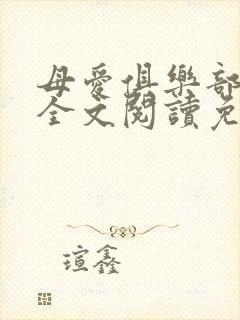 母愛俱樂部
全文閱讀免
瑄鑫